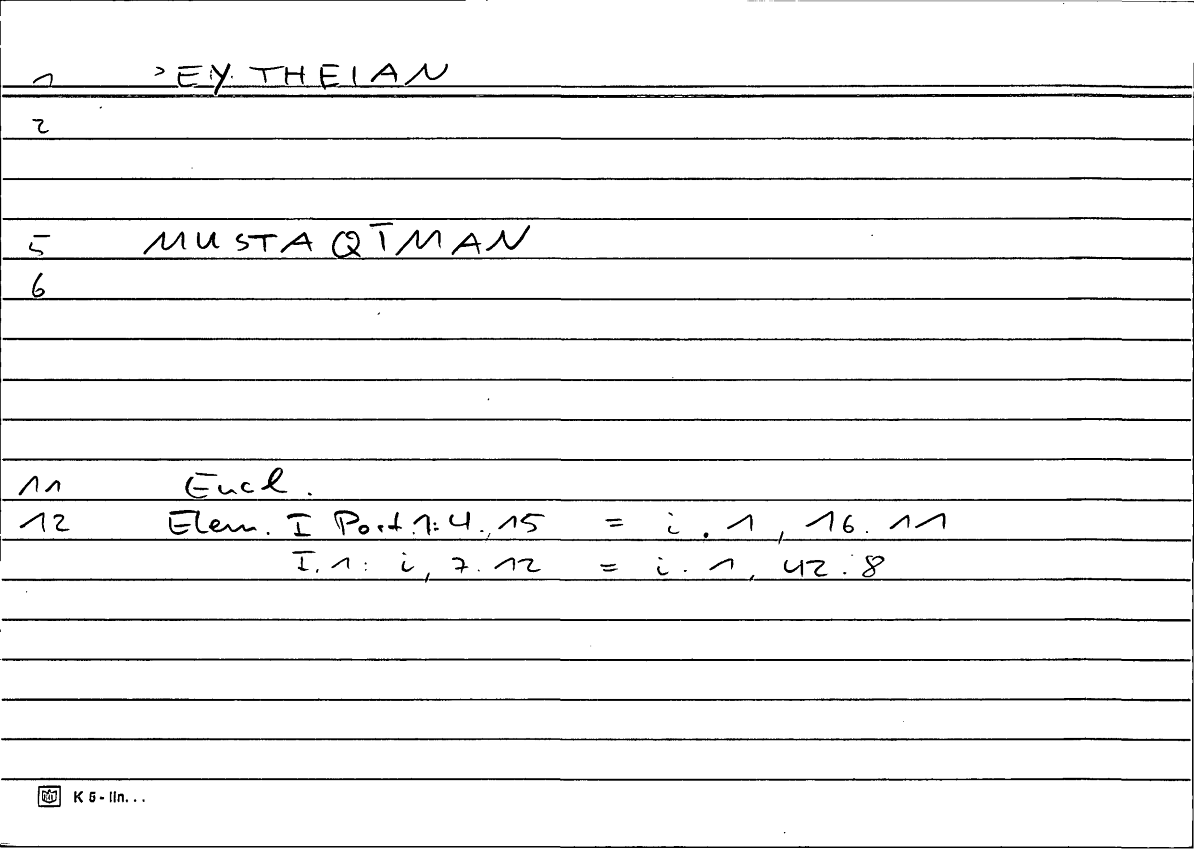 1 >EY. THEIAN
2
5 MUSTAQĪMAN
6
11 Eucl.
12 Elem. I Post. 1: 4., 15 = i. 1, 16. 11
I. 1: i, 7. 12 = i. 1, 42. 8
K 5 - lin...